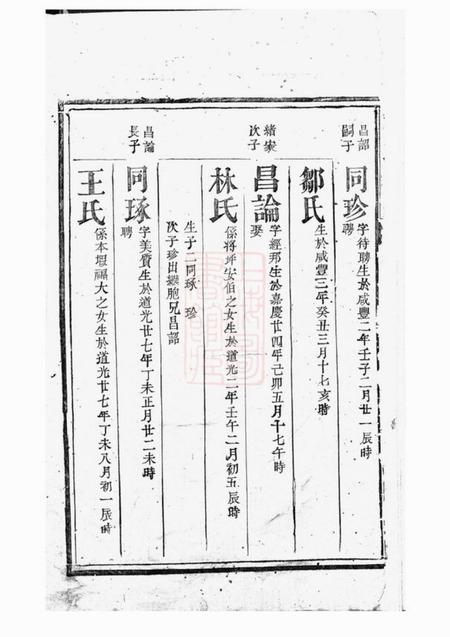 昌韶嗣子
同珍
字待聘生於咸豐二年壬子二月廿一辰時
聘
鄒氏
生於咸豐三年癸丑三月十七亥時
緒崇次子
昌論
字經邦生於嘉慶廿四年己卯五月十七午時
娶
林氏
係將坪安伯之女生於道光二年壬午二月初五辰時
生子二同琢 珍
次子珍出繼胞兄昌韶
昌論長子
同琢
字美質生於道光廿七年丁未正月廿二未時
聘
王氏
係本堰福大之女生於道光廿七年丁未八月初一辰時